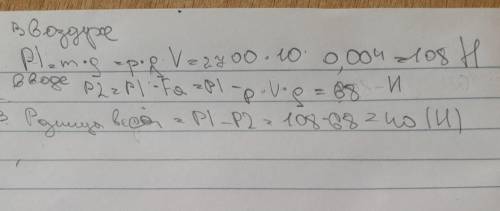 В воздухе
P1=m·g=ρ·g V=2700·10 0,004=108 Н
в воде P2=P1-Fa=P1-ρ·V·g=68-Н
Разница =P1-P2=108-68=40(Н)